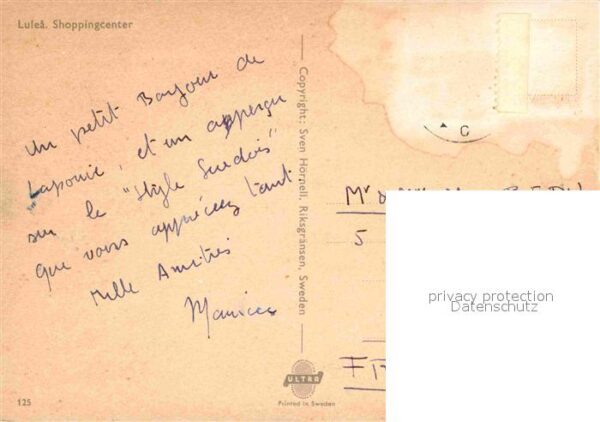 Luleå. Shoppingcenter
un petit Bonjour de
Laponie, et un apperçu
sur le "Style Suedois"
que vous appréciez tant
Mille Amitiés
Maurice
Copyright: Sven Hörnell, Riksgränsen, Sweden
C
Mr
5
privacy protection
Datenschutz
ULTRA
Printed in Sweden
125